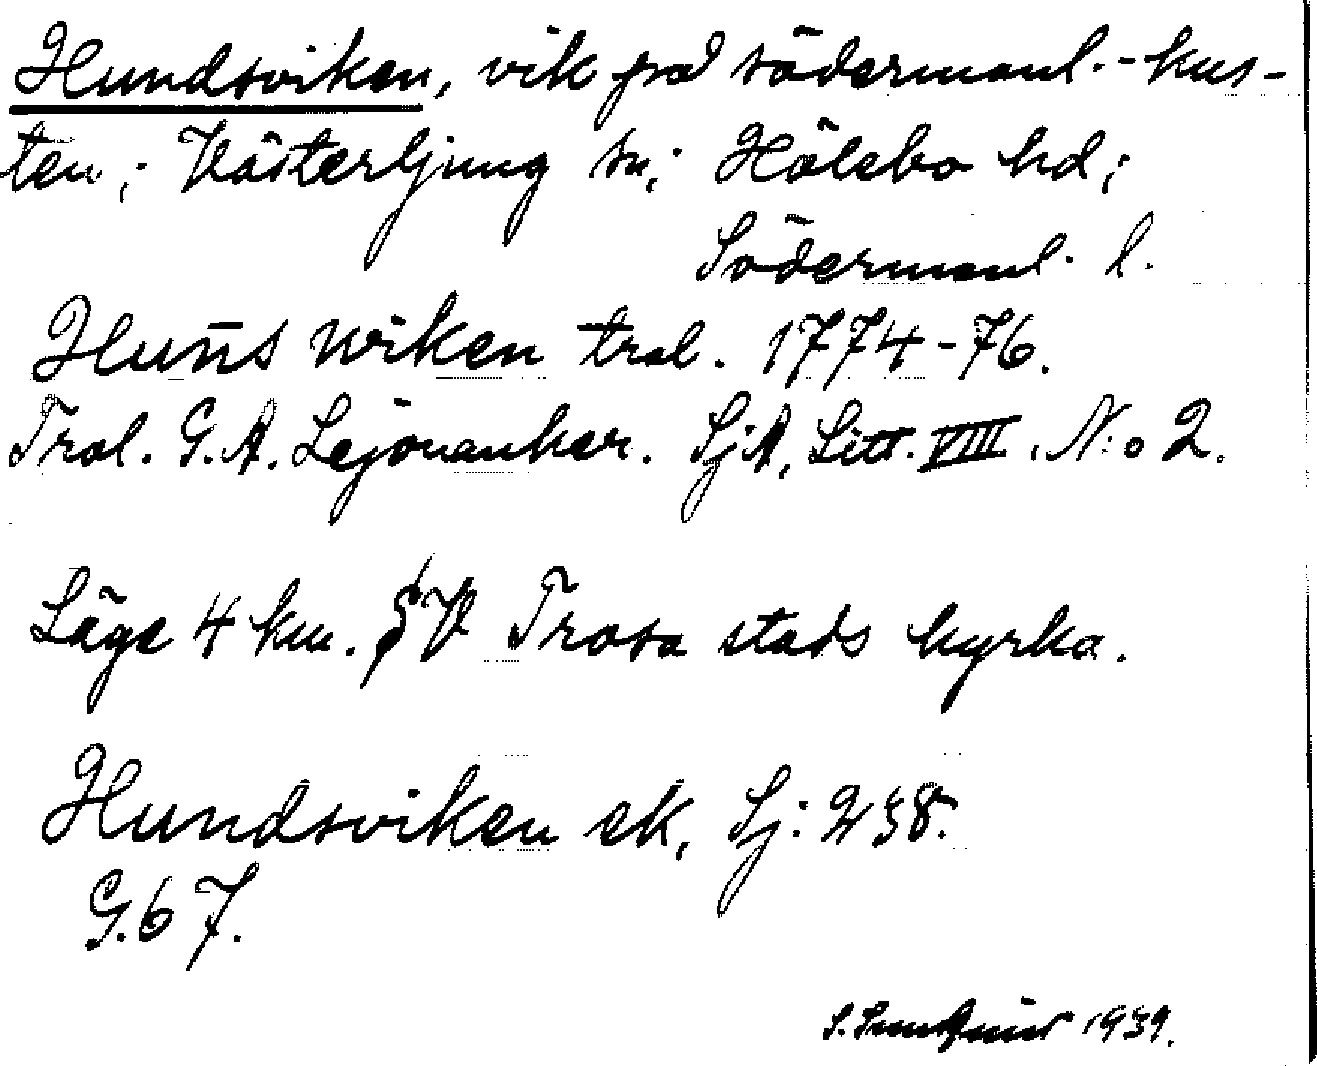 Hundsviken, vik på södermanl.-kus-
ten; Västerljung sn; Hölebo hd;
Södermanl. l.
Hun̄s wiken tral. 1774-76.
Tral. G. A. Lejonanker. SjA, Litt. VIII. N:o 2.
Läge 4 km. V Trosa stads kyrka.
Hundsviken ek, Sj: 238.
G. 67.
S. 1939.